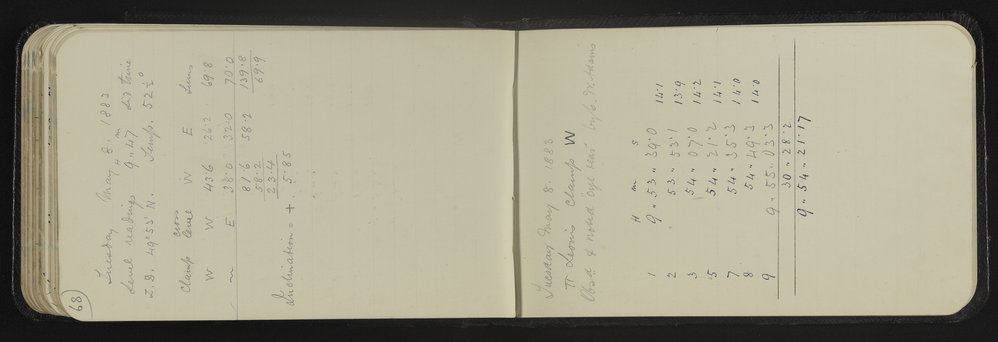 68
Tuesday May 8. 1883
H m
Level readings 9.47 Sid time
Z.D. 49°53' N. Temp. 52½°
Clamp cross level W E Sums
W W 43.6 26.2 69.8
" E 38.0 32.0 70.0
81.6 58.2 139.8
58.2 69.9
23.4
Inclination = + 5.85
Tuesday May 8. 1883
π Leonis Clamp W
Obsd & noted eye &ear by
H m s
1 9 " 53 " 39.0 14.1
2 53 " 53.1 13.9
3 54 " 07.0 14.2
5 54 " 21.2 14.1
7 54 " 35.3 14.0
8 54 " 49.3 14.0
9 9 " 55 " 03.3
30 " 28.2
9 " 54 " 21.17